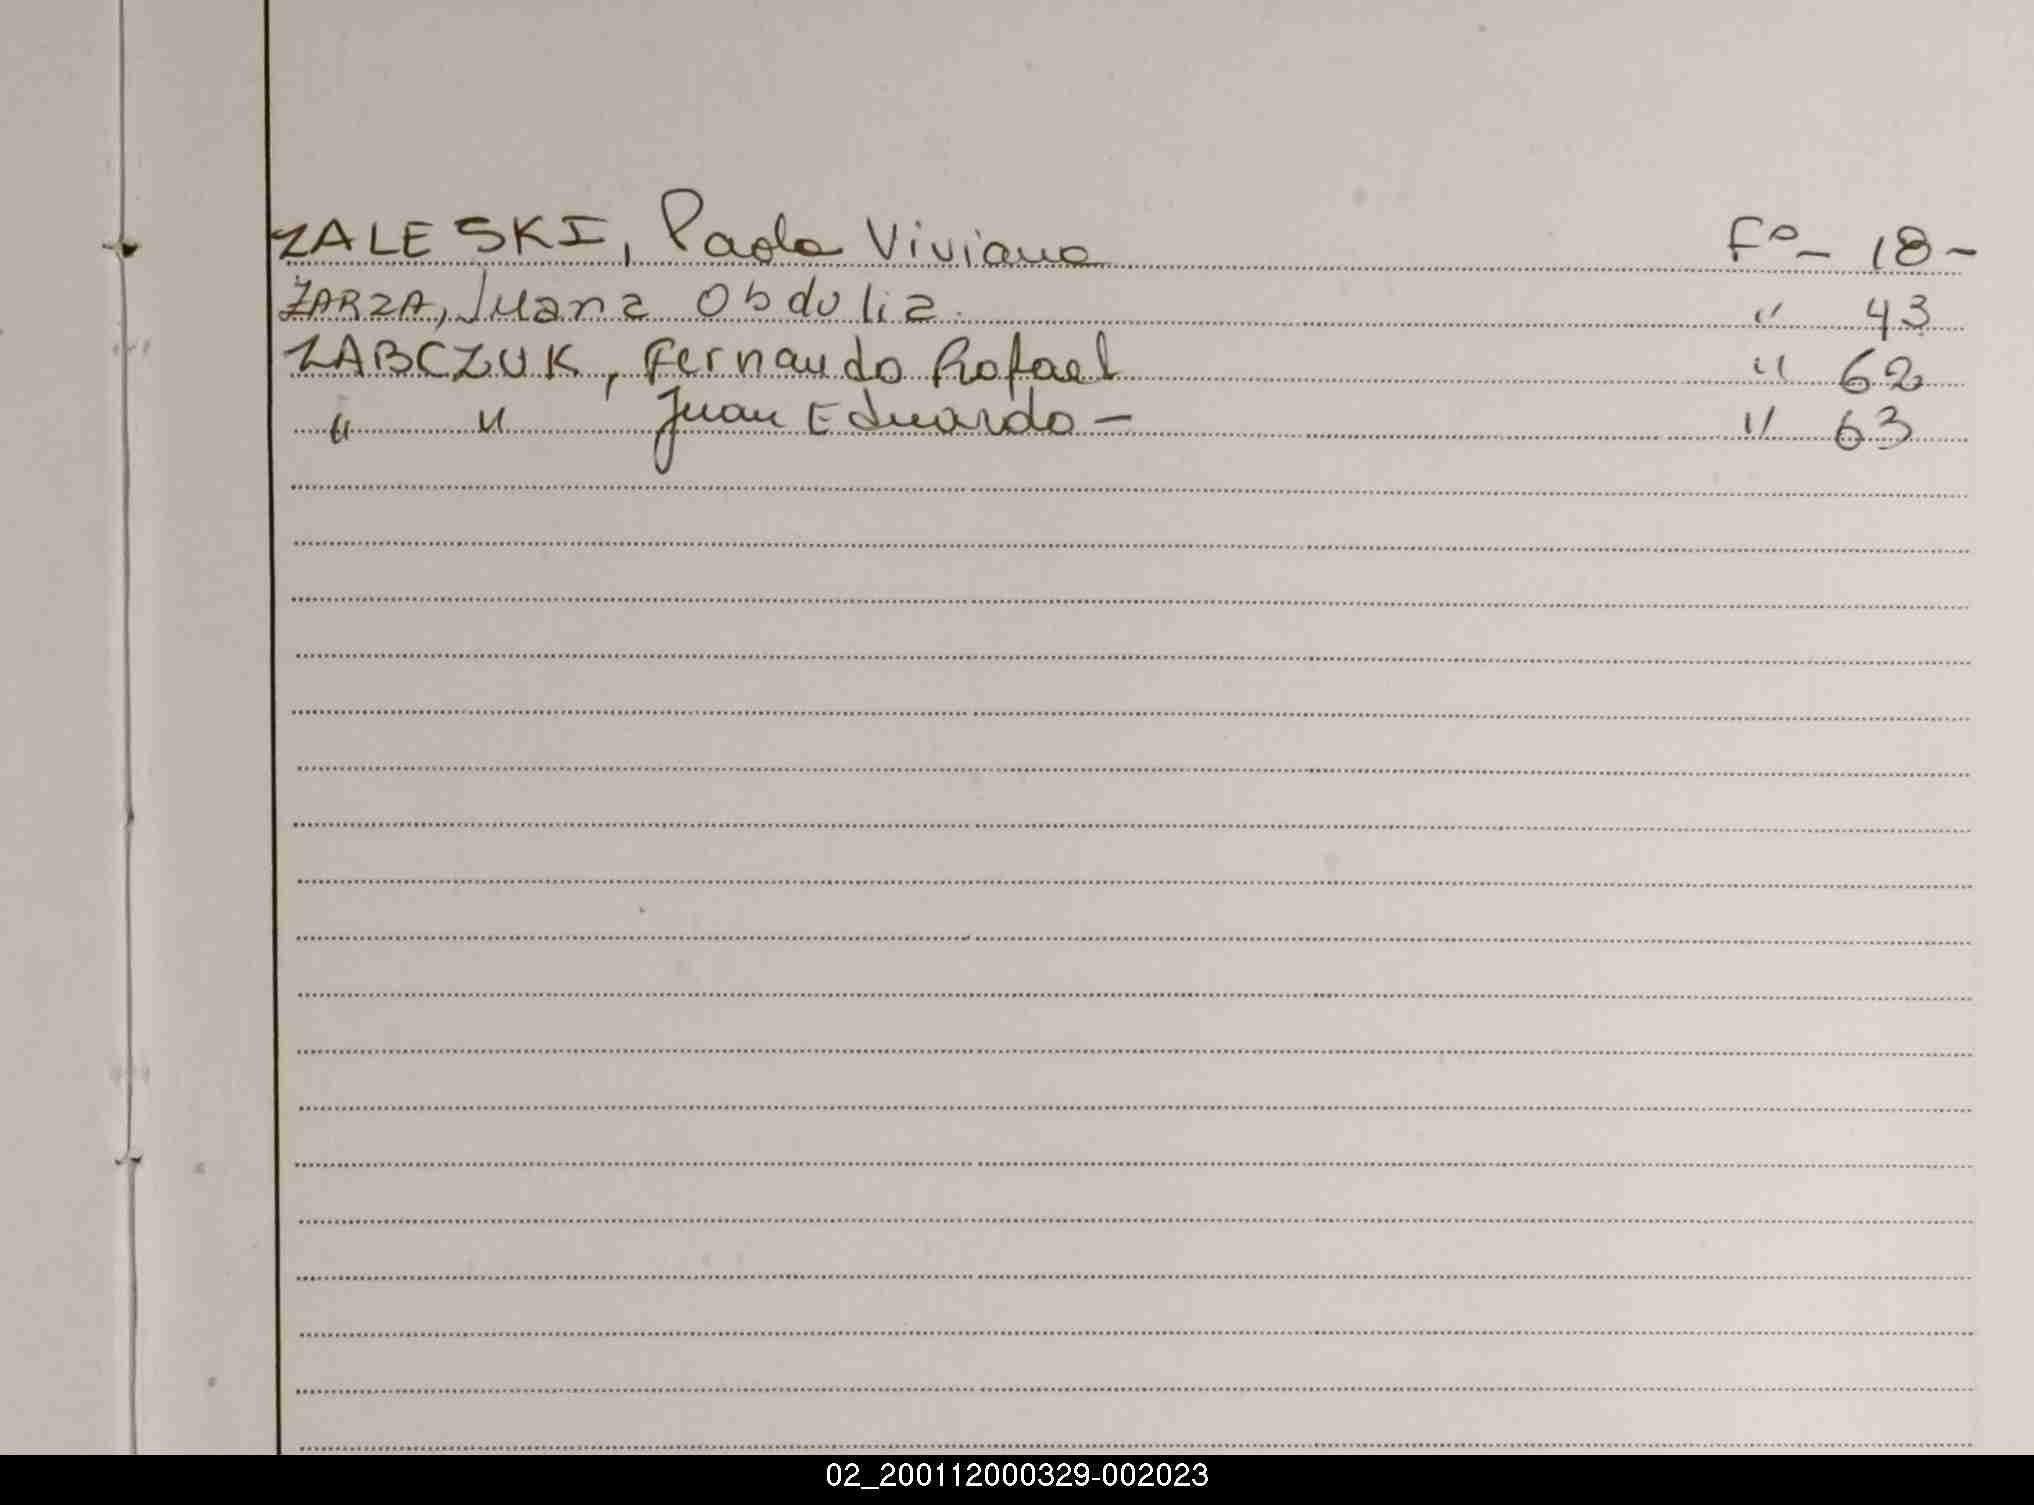 ZALESKI, Paola Viviana Fº - 18 -
ZARZA, Juana Obdulia. " 43
ZABCZUK, Fernando Rafael " 62
" " Juan Eduardo - " 63
02_200112000329-002023